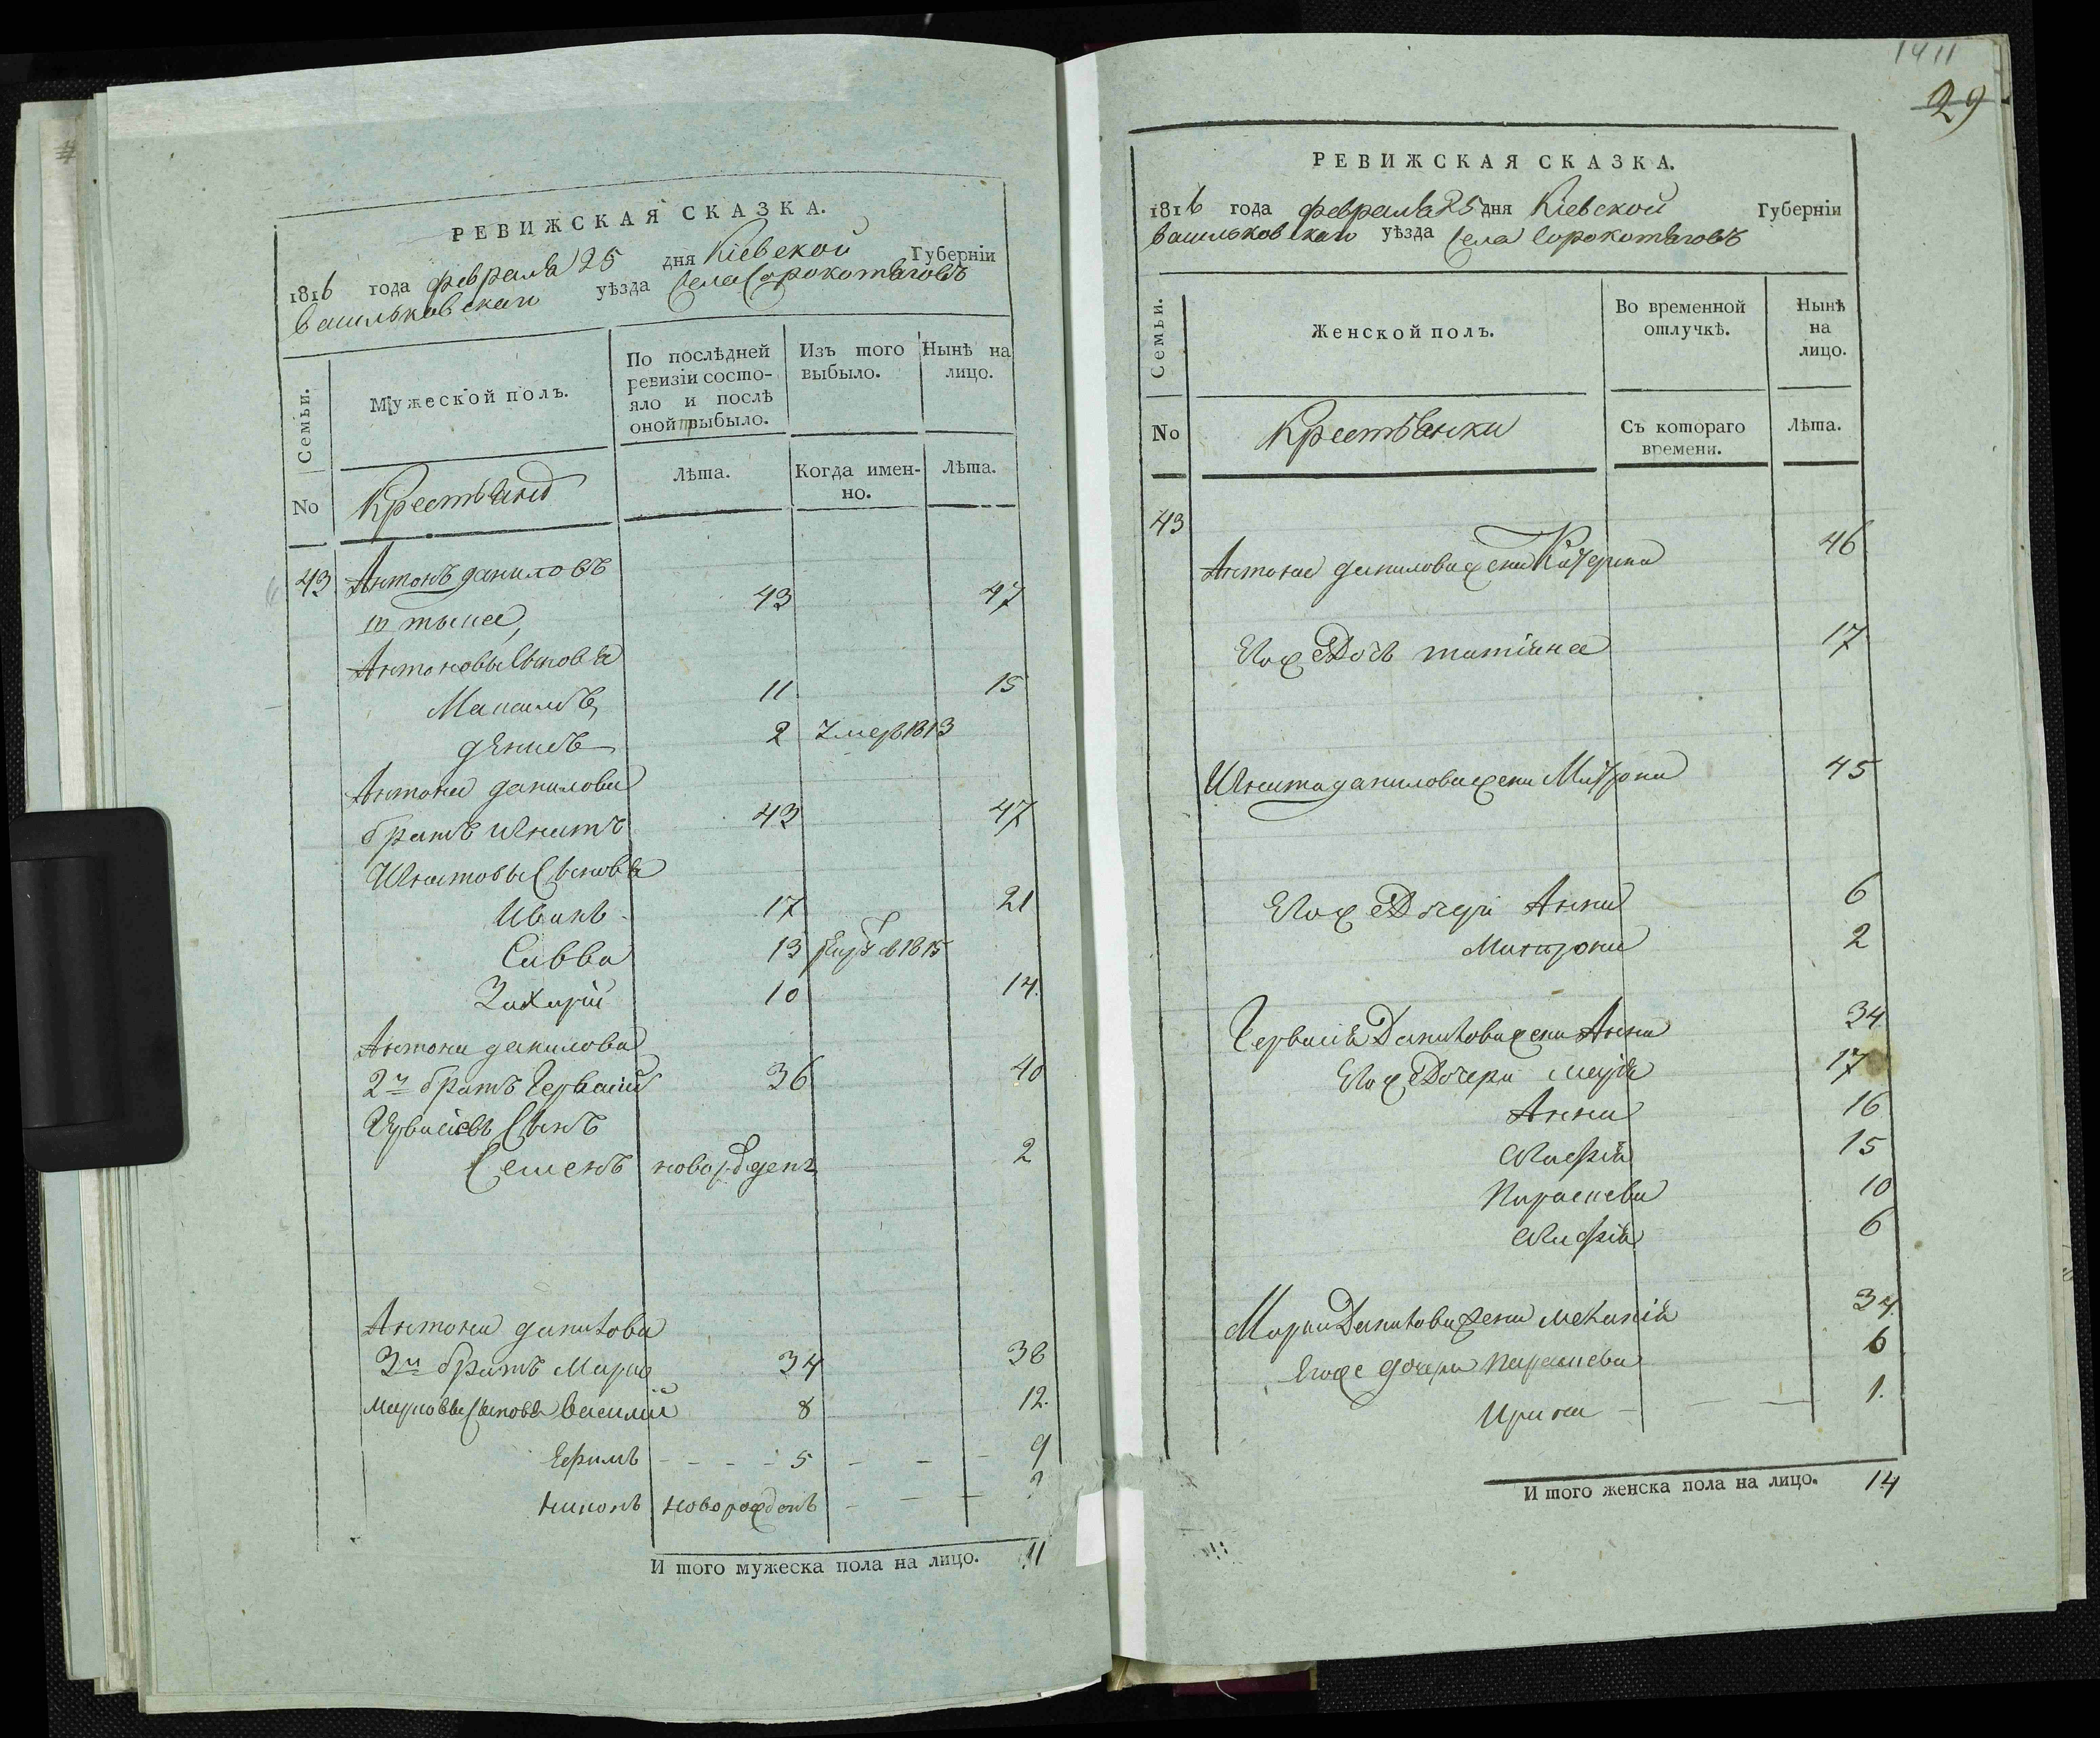 РЕВИЖСКАЯ СКАЗКА.
1816 года февраля 25 дня Кіевской Губерніи
Васильковскаго уѣзда села Сорокотяговъ
Семьи.
Мужеской полъ.
По послѣдней ревизіи состояло и послѣ оной прибыло.
Изъ того выбыло.
Нынѣ на лицо.
No
Крестьянѣ
Лѣта.
Когда именно.
Лѣта.
43 Антонъ даниловъ
43 47
Антоновы Сыновя
11 15
дЕнисъ 2 Умер 1813
Антона данилова
братъ Игнатъ 43 47
Игнатовы Сыновя
Иванъ 17 21
Савва 13 1815
Захарій 10 14.
Антона данилова
2й братъ Гервасій 36 40
Гервасіевъ Сынъ
Семенъ новорожденъ 2
Антона данилова
3й братъ Марко 34 38
Марковы Сыновя Василій 8 12.
Ефимъ - - - - 5 - - - 9
новорожденъ - - -
И того мужеска пола на лицо. 11
1411
29
РЕВИЖСКАЯ СКАЗКА.
1816 года февраля 25 дня Кіевской Губерніи
Васильковскаго уѣзда Села Сорокотяговъ
Семьи.
Женской полъ.
Во временной отлучкѣ.
Нынѣ на лицо.
No
Крестьянки
Съ котораго времени.
Лѣта.
43
Антона данилова жена Катерина 46
Егож Дочь татіяна 17
Игната данилова жена Матрона 45
Егож Дочери Анна 6
Матрона 2
Гервасія Данилова жена Анна 34
Егож Дочери марія 17
Анна 16
15
Параскева 10
6
Марка Данилова жена меланія 34.
Егоже дочери параскева 6
Ирина - - - 1.
И того женска пола на лицо. 14